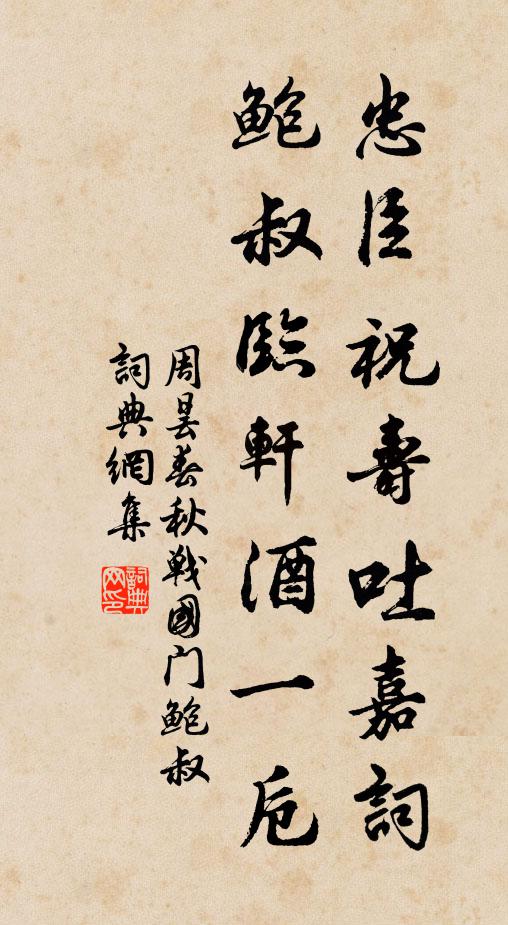 忠臣祝壽吐嘉詞
鮑叔臨軒酒一卮
周昙春秋戰國门鮑叔
詞典網集
詞典网印